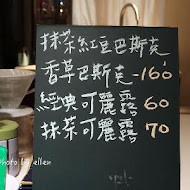 抹茶紅豆巴斯克
香草巴斯克-160
經典可麗露 60
抹茶可麗露 70
photo by ellen